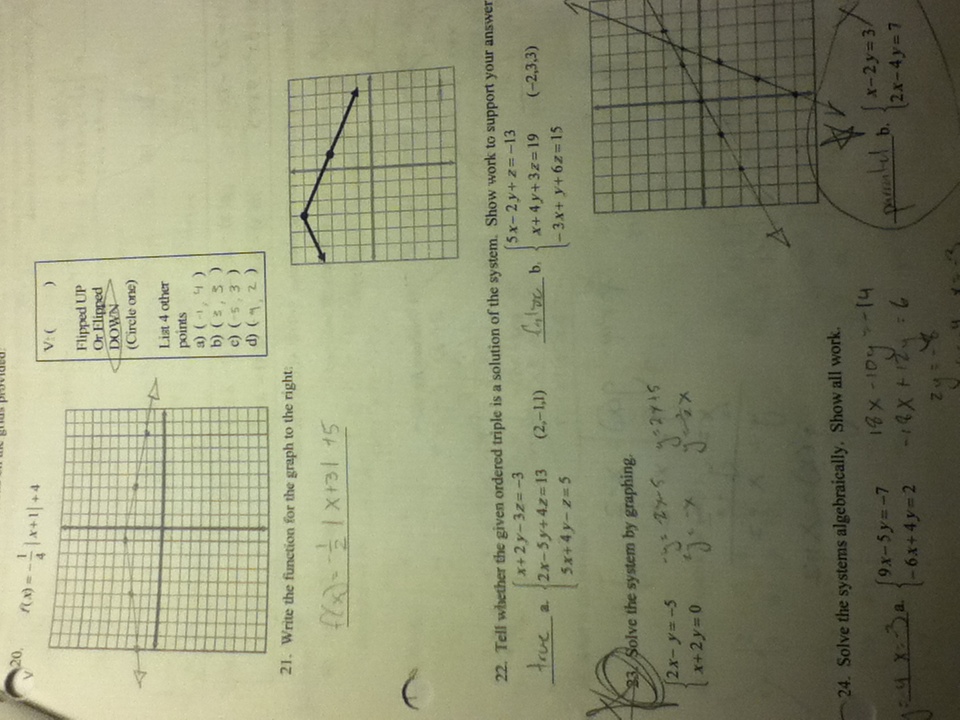 grids provided.
20.
V
f(x) = -1/4 |x+1| + 4
V: (      )
Flipped UP
Or Flipped
DOWN
(Circle one)
List 4 other
points
a) (-1, 4)
b) (3, 3)
c) (-5, 3)
d) (9, 2)
21. Write the function for the graph to the right:
f(x) = -1/2 |x+3| +5
22. Tell whether the given ordered triple is a solution of the system. Show work to support your answer
true a. x+2y-3z=-3
2x-5y+4z=13 (2,-1,1)
5x+4y-z=5
false b. 5x-2y+z=-13
x+4y+3z=19 (-2,3,3)
-3x+y+6z=15
23. Solve the system by graphing.
2x-y=-5
x+2y=0
y=2x+5
24. Solve the systems algebraically. Show all work.
y=4 x=-3 a. 9x-5y=-7
-6x+4y=2
18x-10y=-14
-18x+12y=6
2y=-8
b. x-2y=3
2x-4y=7